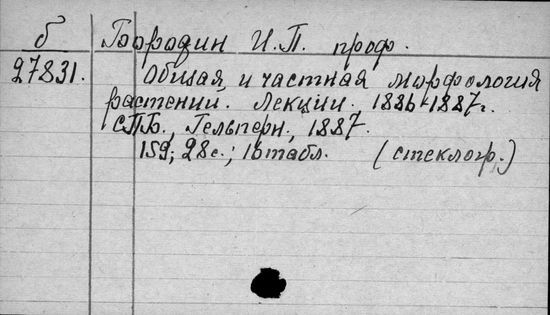 б Бородин И. П. проф.
27831. Общая и частная морфология
растений. Лекции. 1886-1887г.
СПБ., Гельперн, 1887.
159; 28с.; 16 табл. (стеклогр.)